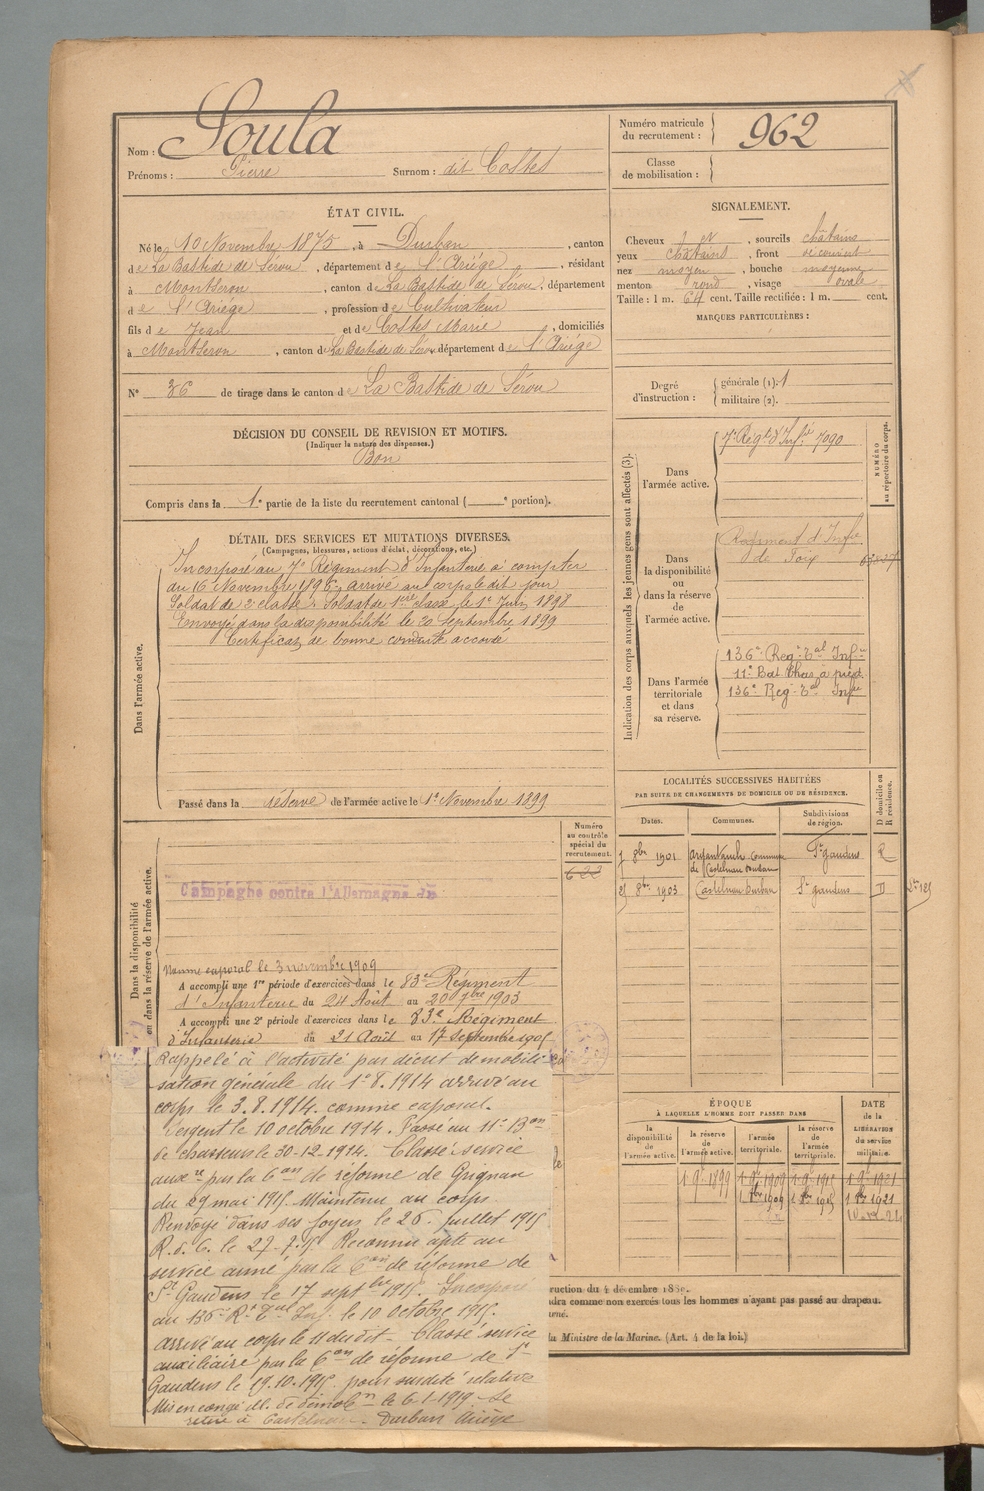 Nom : Soula
Prénoms : Pierre Surnom : dit Costes
Numéro matricule du recrutement : 962
Classe de mobilisation :
ÉTAT CIVIL.
Né le 10 Novembre 1875, à Durban, canton
de La Bastide de Sérou, département de l'Ariége, résidant
à Montseron, canton de La Bastide de Sérou, département
de l'Ariége, profession de Cultivateur
fils de Jean et de Costes Marie, domiciliés
à Montseron, canton de La Bastide de Sérou département de l'Ariége
N° 36 de tirage dans le canton de La Bastide de Sérou
SIGNALEMENT.
Cheveux et, sourcils châtains
yeux châtains, front découvert
nez moyen, bouche moyenne
menton rond, visage ovale
Taille : 1 m. 64 cent. Taille rectifiée : 1 m. cent.
MARQUES PARTICULIÈRES :
Degré d'instruction : générale (1). 1
militaire (2).
DÉCISION DU CONSEIL DE REVISION ET MOTIFS.
(Indiquer la nature des dispenses.)
Bon
Compris dans la 1e partie de la liste du recrutement cantonal ( e portion).
DÉTAIL DES SERVICES ET MUTATIONS DIVERSES.
(Campagnes, blessures, actions d'éclat, décorations, etc.)
Dans l'armée active.
Incorporé au 7e Régiment d'Infanterie à compter
du 16 Novembre 1896, arrivé au corps le dit jour
Soldat de 2e classe. Soldat de 1ere classe le 1er Juin 1898
Envoyé dans la disponibilité le 20 Septembre 1899
Certificat de bonne conduite accordé
Passé dans la réserve de l'armée active le 1er Novembre 1899
Indication des corps auxquels les jeunes gens sont affectés (3).
NUMÉRO au répertoire du corps.
Dans l'armée active.
7e Régt d'Infie 7090
Dans la disponibilité ou dans la réserve de l'armée active.
Régiment d'Infie
de Foix
Dans l'armée territoriale et dans sa réserve.
136e Regt Tal Infie
11e Bat Chas à pied
136e Reg. Tal Infie
LOCALITÉS SUCCESSIVES HABITÉES
PAR SUITE DE CHANGEMENTS DE DOMICILE OU DE RÉSIDENCE.
Dates. Communes. Subdivisions de région. D domicile ou R résidence.
8bre 1901 Commune de Castelnau Durban St gaudens R
8bre 1903 Castelnau Durban St gaudens D
Dans la disponibilité ou dans la réserve de l'armée active.
Numéro au contrôle spécial du recrutement.
622
Campagne contre l'Allemagne
Nommé caporal le 3 novembre 1909
A accompli une 1re période d'exercices dans le 83e Régiment
d'Infanterie du 24 Août au 20 7bre 1903
A accompli une 2e période d'exercices dans le 83e Régiment
d'Infanterie du 21 Août au 17 Septembre 1905
Rappelé à l'activité par décret de mobili
sation générale du 1er 8.1914 arrivé au
corps le 3.8.1914. comme caporal.
Sergent le 10 octobre 1914. Passé au 11e Bon
de chasseurs le 30-12-1914. Classé service
auxre par la Con de réforme de Grignan
du 29 mai 1915. Maintenu au corps
Renvoyé dans ses foyers le 26 juillet 1915
Reconnu apte au
service armé par la Con de réforme de
St Gaudens le 17 septbre 1915. Incorporé
au 136e Rt Tal Inf. le 10 octobre 1915.
arrivé au corps le 11 du dit - Classé service
auxiliaire par la Con de réforme de St
Gaudens le 19.10.1915 pour surdité relative
Mis en congé ill. de démobon le 6-1-1919 se
retire à Castelnau-Durban Ariège
ÉPOQUE
À LAQUELLE L'HOMME DOIT PASSER DANS
la disponibilité de l'armée active. la réserve de l'armée active. l'armée territoriale. la réserve de l'armée territoriale.
DATE de la LIBÉRATION du service militaire.
1 9bre 1899 1 9bre 1909 1 9bre 1915 1 9bre 1921
1909 1915 1921
ruction du 4 décembre 1889.
ndra comme non exercés tous les hommes n'ayant pas passé au drapeau.
urné.
la Ministre de la Marine. (Art. 4 de la loi.)